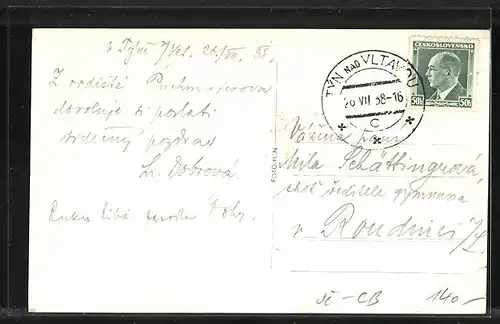 v Týně n/Vlt. 26/VII. 38.
Z rodiště Puchmajerova
dovoluje si poslati
srdečný pozdrav
Dobrová.
Ruku líbá
FOTO-FON
TÝN NAD VLTAVOU
26 VII 38-16
C
ČESKOSLOVENSKO
50h 50h
Vážená paní
Míla Schättingrová,
choť ředitele gymnasia
v Roudnici
JČ-ČB 140,-